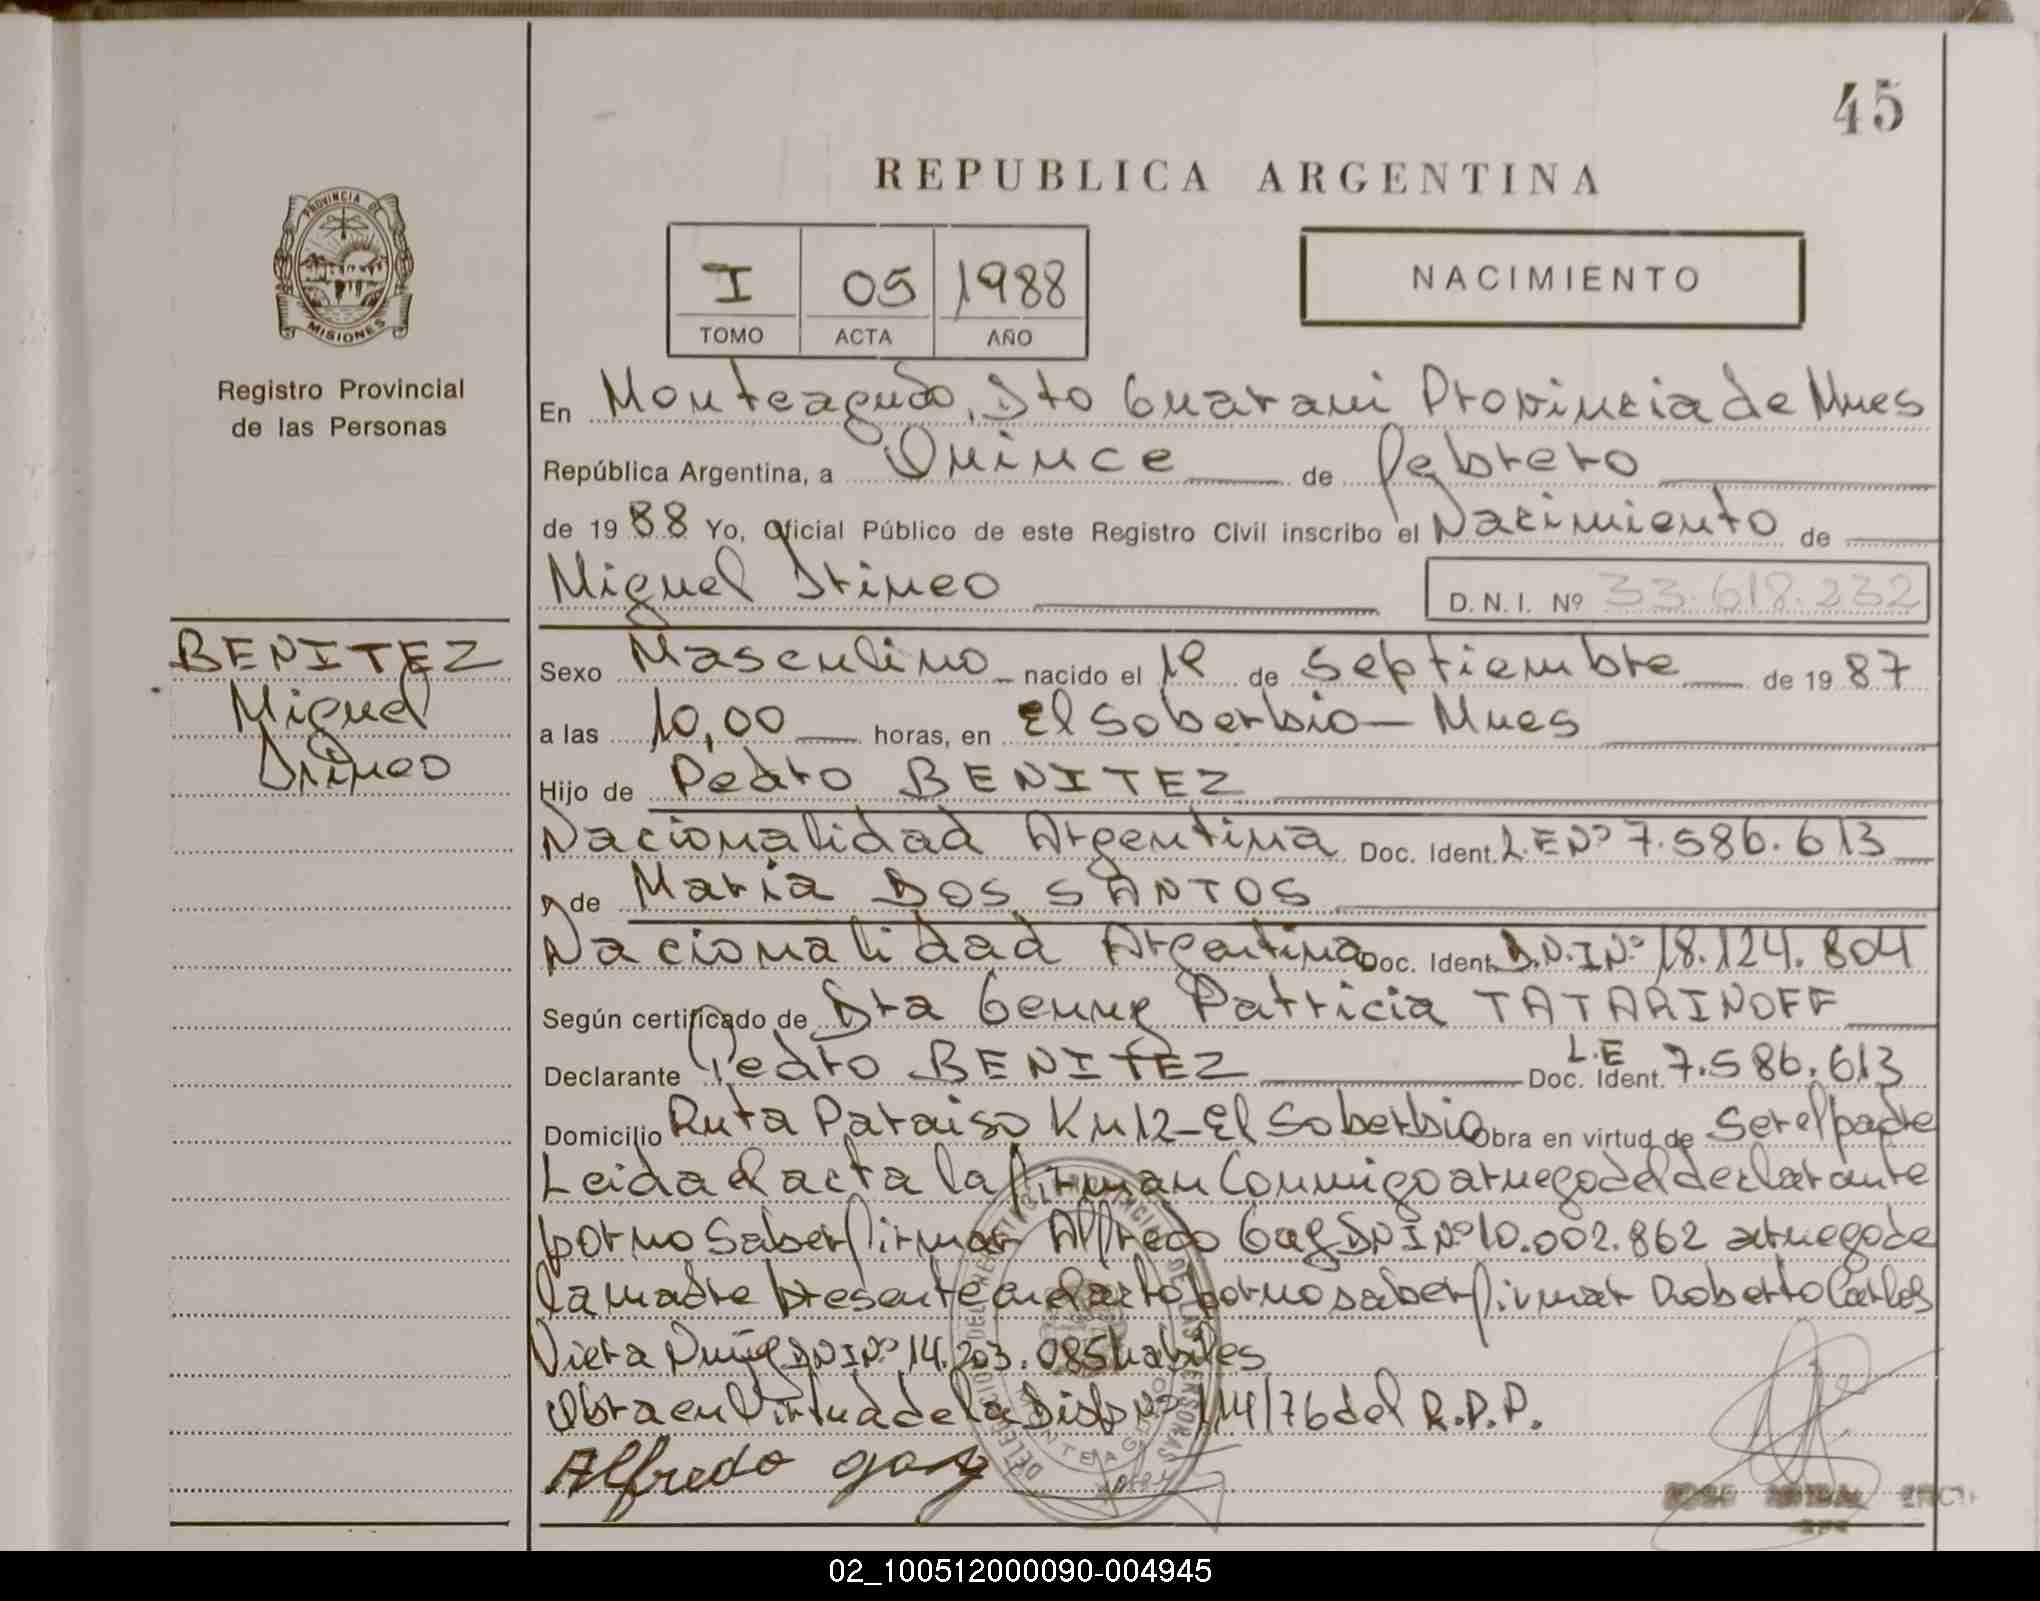 45
REPUBLICA ARGENTINA
PROVINCIA DE
MISIONES
Registro Provincial
de las Personas
I 05 1988
TOMO ACTA AÑO
NACIMIENTO
En Monteagudo, Dto Guarani Provincia de Mnes
República Argentina, a Quince de febrero
de 1988 Yo, Oficial Público de este Registro Civil inscribo el Nacimiento de
Miguel Irineo D. N. I. Nº 33.618.232
BENITEZ
Miguel
Irineo
Sexo Masculino nacido el 1º de Septiembre de 1987
a las 10,00 horas, en El Soberbio - Mnes
Hijo de Pedro BENITEZ
Nacionalidad Argentina Doc. Ident. L.E Nº 7.586.613
y de Maria DOS SANTOS
Nacionalidad Argentina Doc. Ident. D.N.I Nº 18.124.804
Según certificado de Dra Genny Patricia TATARINOFF
Declarante Pedro BENITEZ Doc. Ident. L.E 7.586.613
Domicilio Ruta Paraiso Km 12 - El Soberbio Obra en virtud de Ser el padre
Leida el acta la firman Conmigo a ruego del declarante
por no Saber firmar Alfredo DNI Nº 10.002.862 a ruego de
la madre presente en el acto por no saber firmar Roberto Carlos
Viera DNI Nº 14.203.085 habiles
Obra en Virtud de la Disp Nº 114/76 del R.P.P.
Alfredo
02_100512000090-004945